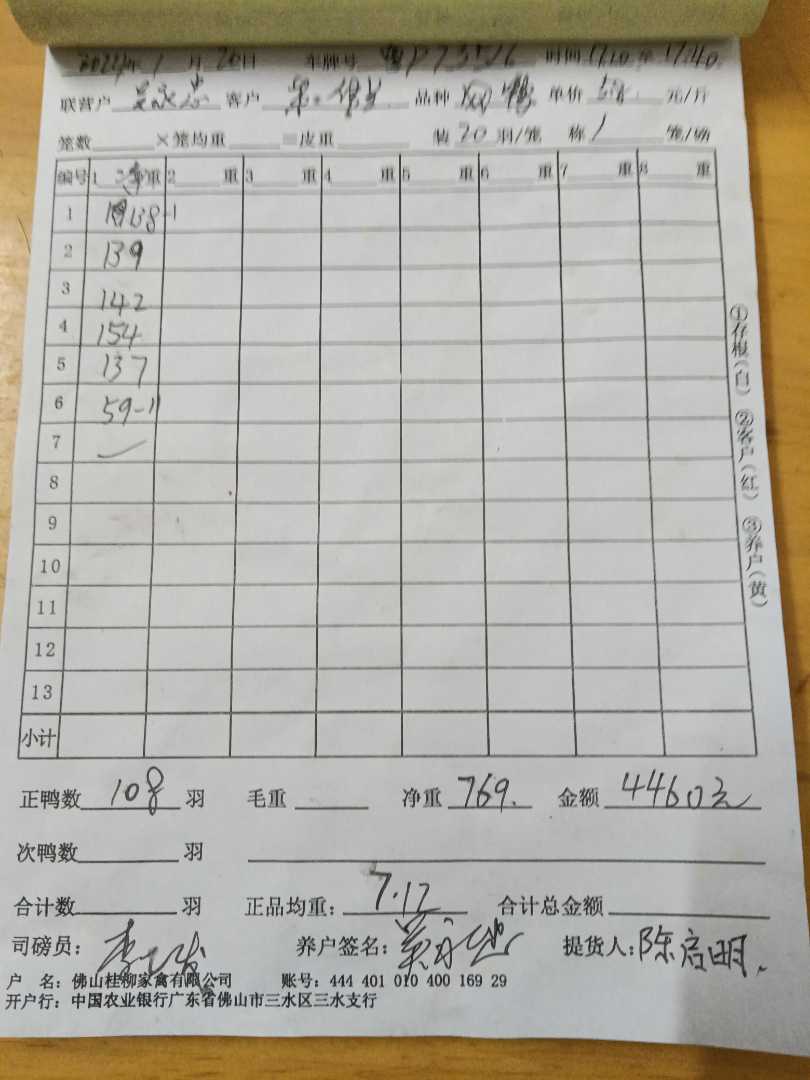 2024年1月20日 车牌号 时间17.10至17.40
联营户 客户 品种 单价 元/斤
笼数 ×笼均重 =皮重 装20羽/笼 称1笼/磅
编号 1 净重 2 重 3 重 4 重 5 重 6 重 7 重 8 重
1 138-1
2 139
3 142
4 154
5 137
6 59-11
7
8
9
10
11
12
13
小计
正鸭数 108 羽 毛重 净重 769. 金额 4460元
次鸭数 羽
合计数 羽 正品均重: 7.12 合计总金额
司磅员: 养户签名: 提货人: 陈启明.
户 名: 佛山桂柳家禽有限公司 账号: 444 401 010 400 169 29
开户行: 中国农业银行广东省佛山市三水区三水支行
①存根(白) ②客户(红) ③养户(黄)